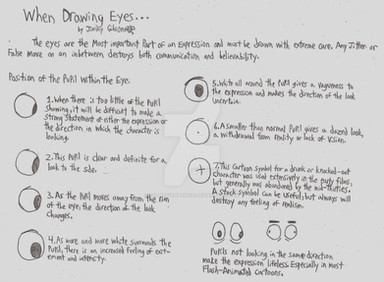 When Drawing Eyes...
by Jimmy
The eyes are the Most important Part of an Expression and must be drawn with extreme care. Any Jitter or
False move on an inbetween destroys both communication and believability.
Position of the Pupil Within the Eye.
1. When there is too little of the Pupil
showing, it will be difficult to make a
strong statement of either the expression or
the direction in which the character is
looking.
2. This Pupil is clear and definite for a
look to the side.
3. As the Pupil moves away from the rim
of the eye, the direction of the look
Changes.
4. As more and more white surrounds the
Pupil, there is an increased feeling of
and intensity.
5. White all around the Pupil gives a vagueness to
the expression and makes the direction of the look
uncertain.
6. A smaller than normal Pupil gives a dazed look,
a withdrawal from reality or lack of vision.
7. This Cartoon symbol for a drunk or knocked-out
character was used extensively in the early films,
but generally was abandoned by the mid-thirties.
A stock symbol can be useful, but always will
destroy any feeling of realism.
Pupils not looking in the same direction
make the expression lifeless. Especially in most
Flash-Animated cartoons.